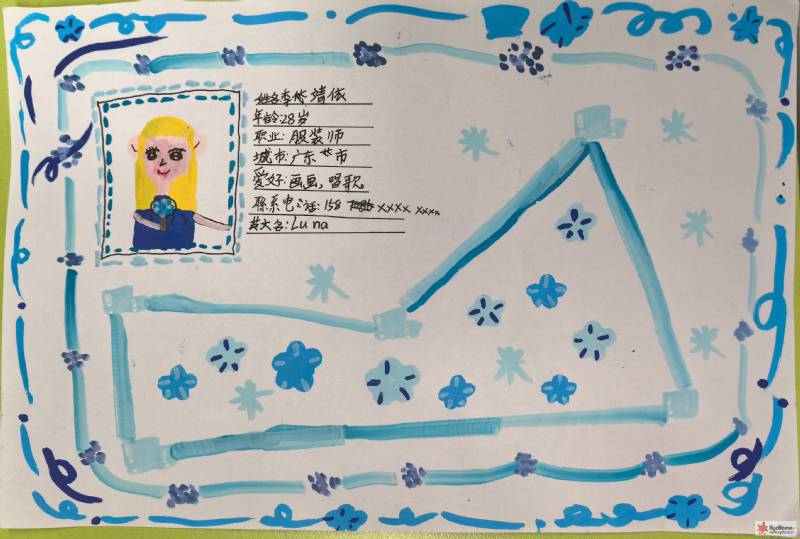 姓名:李 靖依
年龄:28岁
职业:服装师
城市:广东 市
爱好:画画,唱歌
联系电话:158 xxxx xxxx
英文名:Luna